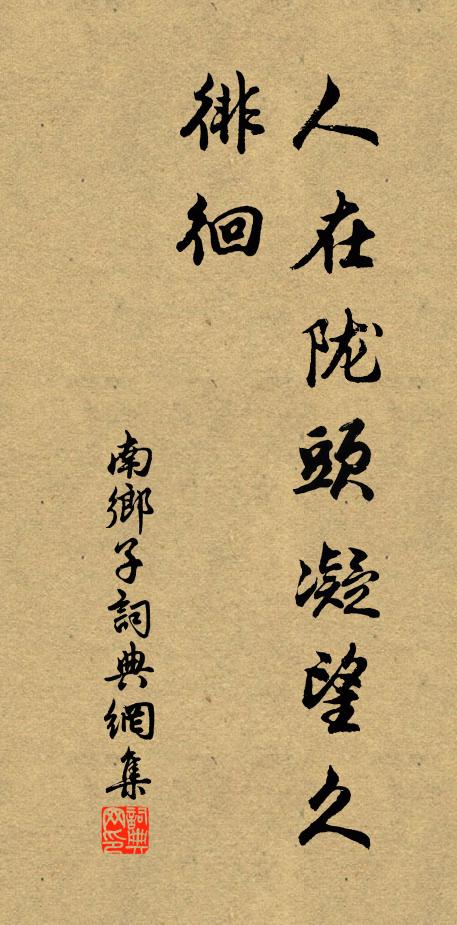 人在陇頭凝望久
徘徊
南鄉子詞典網集
詞典网印